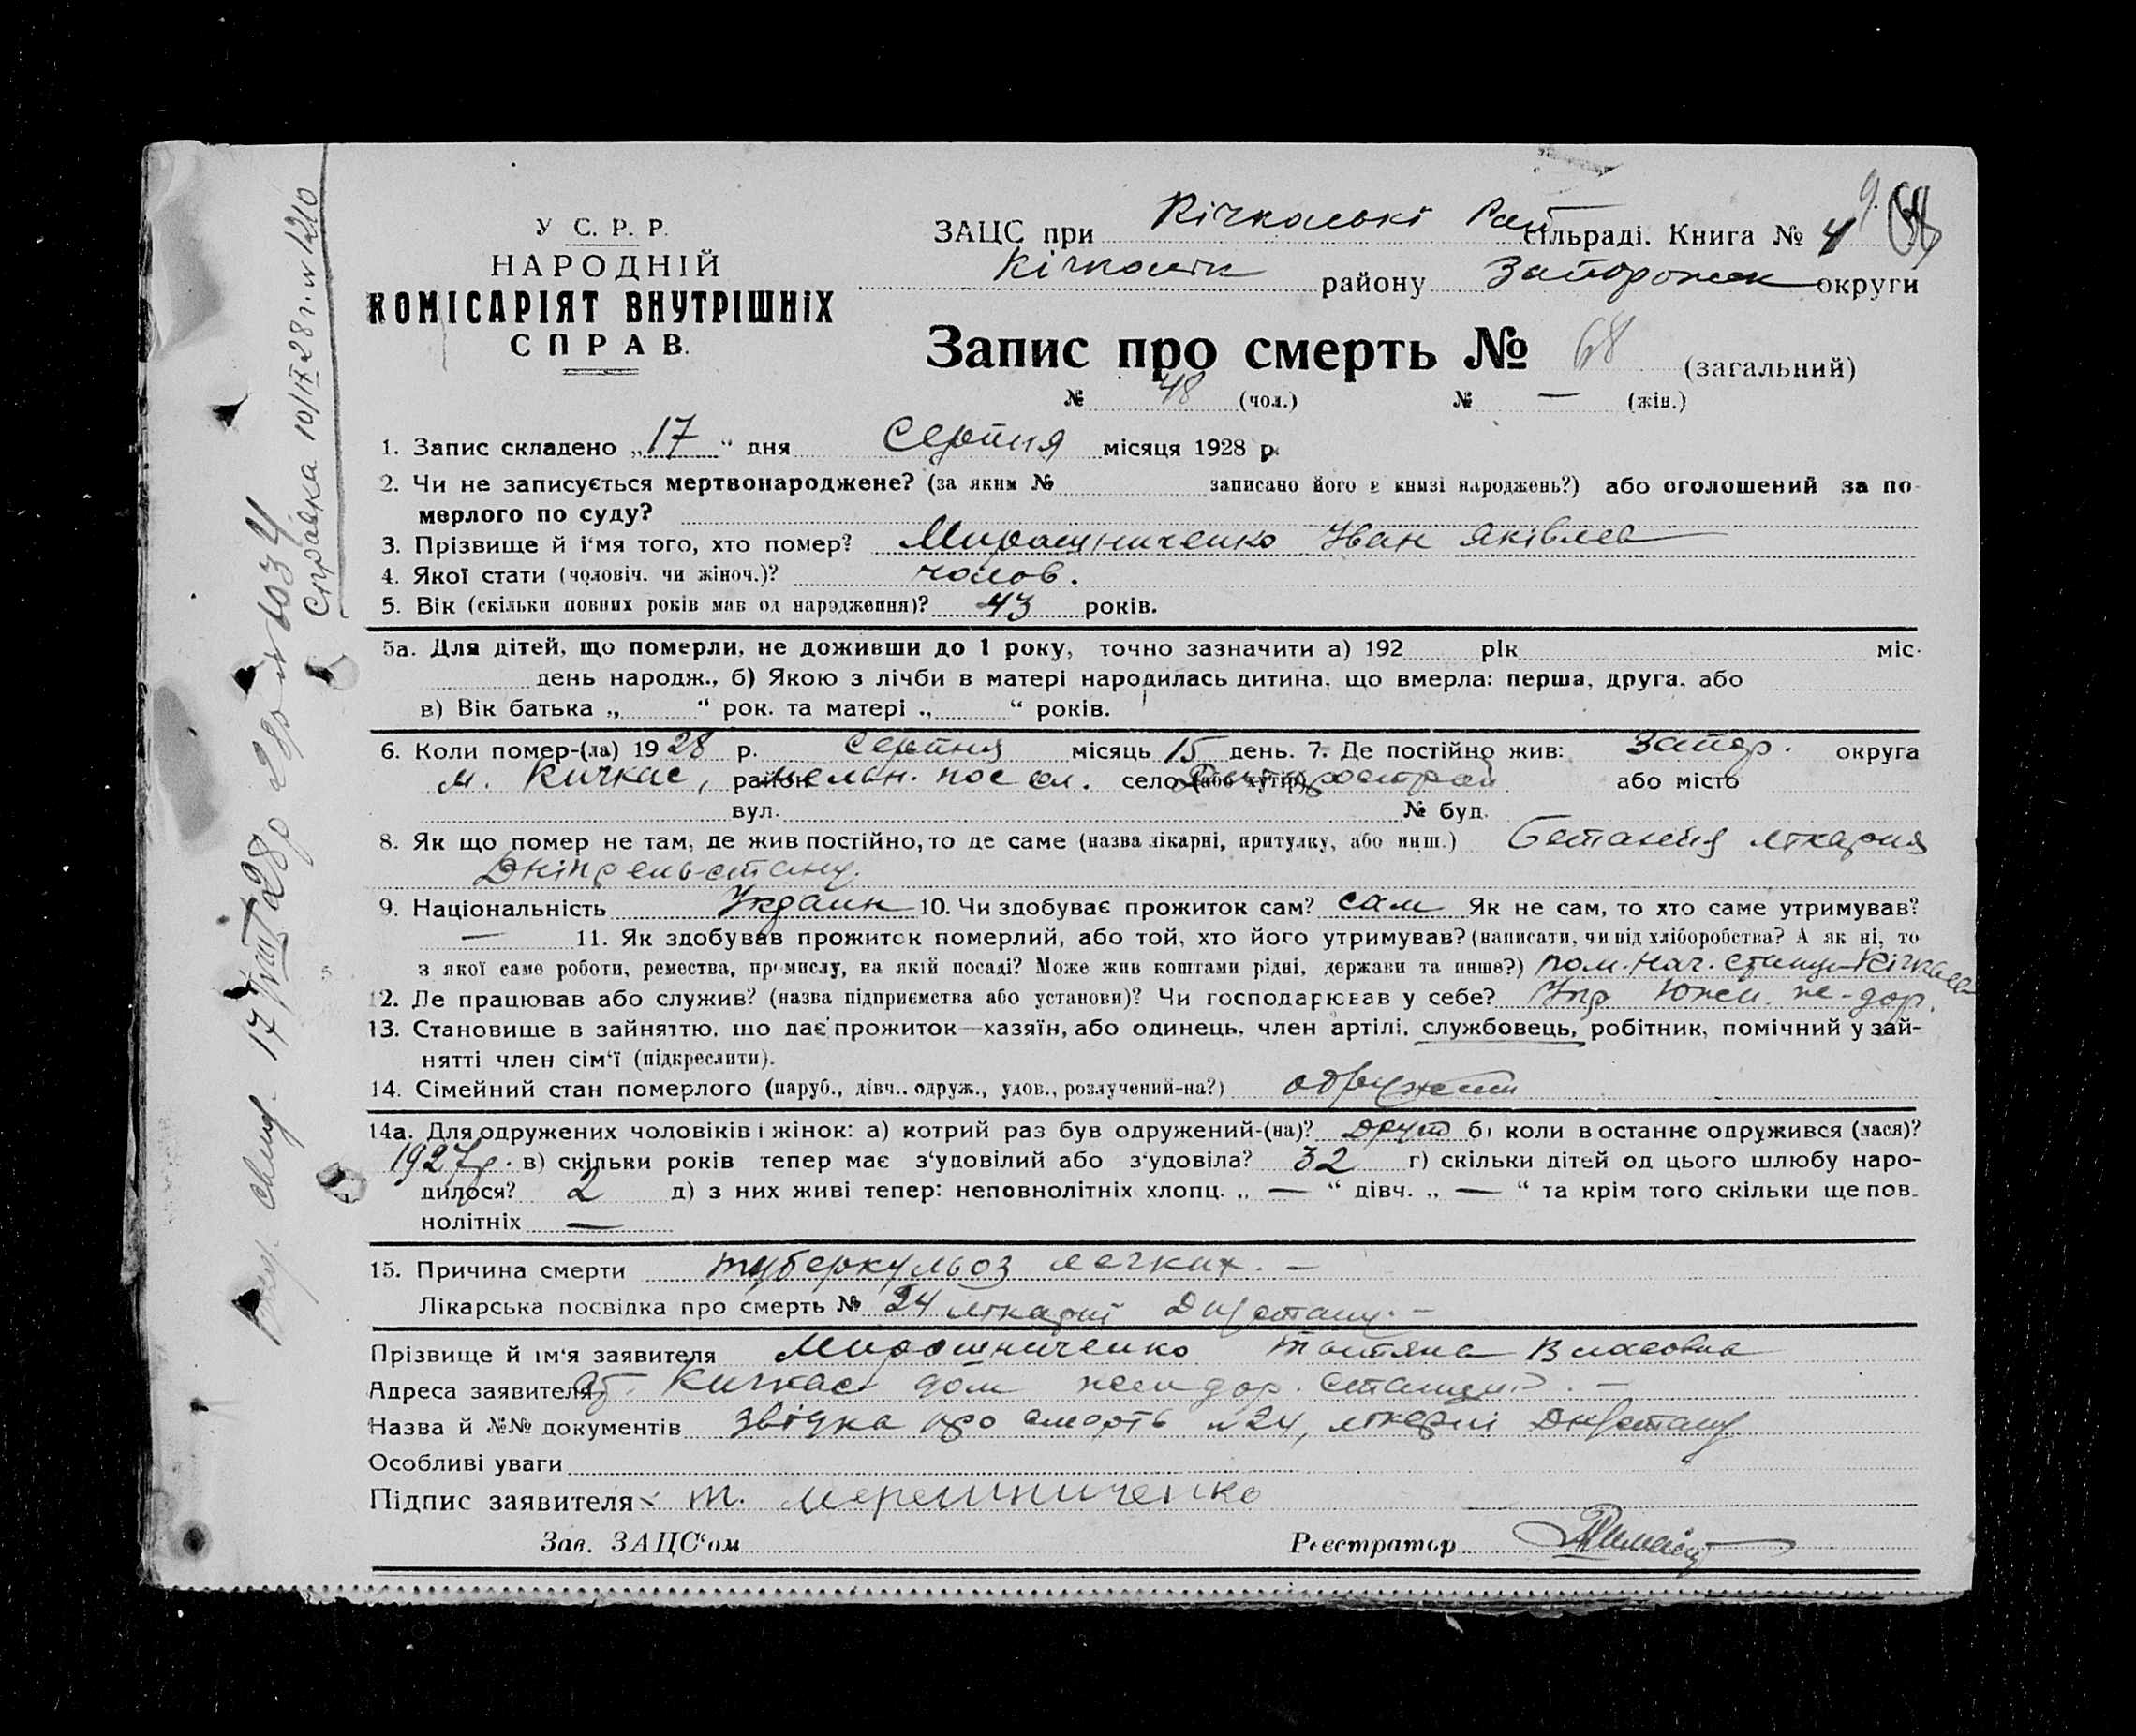 У С. Р. Р.
НАРОДНІЙ
КОМІСАРІЯТ ВНУТРІШНІХ
СПРАВ.
ЗАЦС при Кічкаські Рай сільраді. Книга № 4
Кічкаськ району Запорожськ округи
Запис про смерть № 68 (загальний)
№ 48 (чол.) № — (жін.)
1. Запис складено „17“ дня Серпня місяця 1928 р.
2. Чи не записується мертвонароджене? (за яким № записано його в книзі народжень?) або оголошений за по-
мерлого по суду?
3. Прізвище й і'мя того, хто помер? Мирошниченко Іван Яківлев
4. Якої стати (чоловіч. чи жіноч.)? чолов.
5. Вік (скільки повних років мав од народження)? 43 років.
5а. Для дітей, що померли, не доживши до 1 року, точно зазначити а) 192 рік міс.
день народж., б) Якою з лічби в матері народилась дитина, що вмерла: перша, друга, або
в) Вік батька „ “ рок. та матері „ “ років.
6. Коли помер-(ла) 1928 р. Серпня місяць 15 день. 7. Де постійно жив: Запор. округа
м. Кичкас, район село (або хутір) або місто
вул. № буд.
8. Як що помер не там, де жив постійно, то де саме (назва лікарні, притулку, або инш.) лікарня
Дніпрельстану.
9. Національність Украин 10. Чи здобуває прожиток сам? сам Як не сам, то хто саме утримував?
— 11. Як здобував прожиток померлий, або той, хто його утримував? (написати, чи від хліборобства? А як ні, то
з якої саме роботи, ремества, промислу, на якій посаді? Може жив коштами рідні, держави та инше?) пом. нач. станци Кічкас
12. Де працював або служив? (назва підприємства або установи)? Чи господарював у себе? Упр Южн. же-дор.
13. Становище в зайняттю, що дає прожиток—хазяїн, або одинець, член артілі, службовець, робітник, помічний у зай-
нятті член сім'ї (підкреслити).
14. Сімейний стан померлого (паруб., дівч., одруж., удов., розлучений-на?) одружени
14а. Для одружених чоловіків і жінок: а) котрий раз був одружений-(на)? друг б) коли в останнє одружився (лася)?
1927р. в) скільки років тепер має з'удовілий або з'удовіла? 32 г) скільки дітей од цього шлюбу наро-
дилося? 2 д) з них живі тепер: неповнолітніх хлопц. „ — “ дівч. „ — “ та крім того скільки ще пов-
нолітніх —
15. Причина смерти туберкульоз легких. —
Лікарська посвідка про смерть № 24 лікарні Днрстану. —
Прізвище й ім'я заявителя Мирошниченко Татяна Власовна
Адреса заявителя Кичкас дом жел дор. станции. —
Назва й №№ документів звідка про смерть №24, лікарні Днрстану
Особливі уваги
Підпис заявителя Т. Мерешниченко
Зав. ЗАЦС'ом Реєстратор
17/VIII 28р
Справка 10/IX 28 г. № 1210